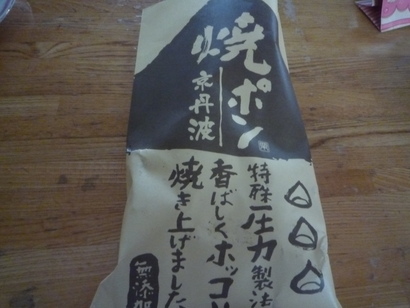 焼ポン
京丹波
特殊圧力製法
香ばしくホッコリ
焼き上げました
無添加